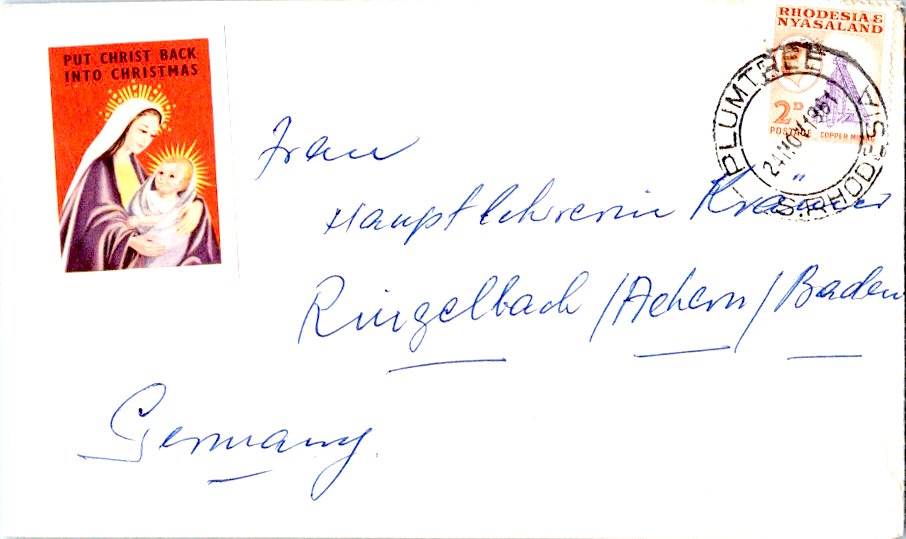 PUT CHRIST BACK
INTO CHRISTMAS
RHODESIA &
NYASALAND
2D
POSTAGE COPPER MINING
PLUMTREE
24 NOV 1961
S. RHODESIA
Frau
Hauptlehrerin
Ringelbach / Achern / Baden
Germany